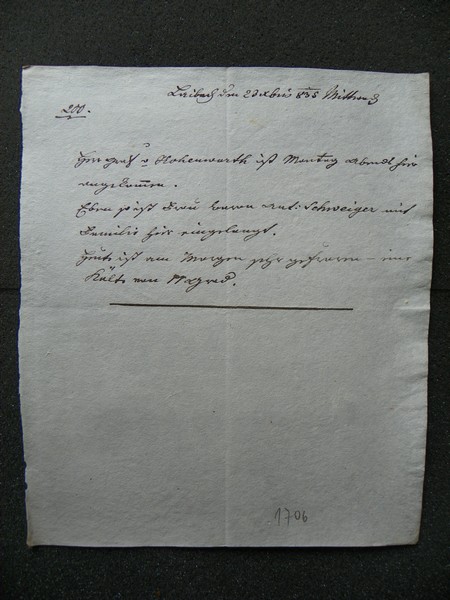 Laibach den 23 Xbris 835 Mittwoch
200.
Herr Graf v Hohenwarth ist Montag Abends hier
angekommen.
Eben so ist Frau Baron Ant: Schweiger mit
Familie hier eingelangt.
Heute ist am Morgen sehr gefroren – eine
Kälte von grad.
1706